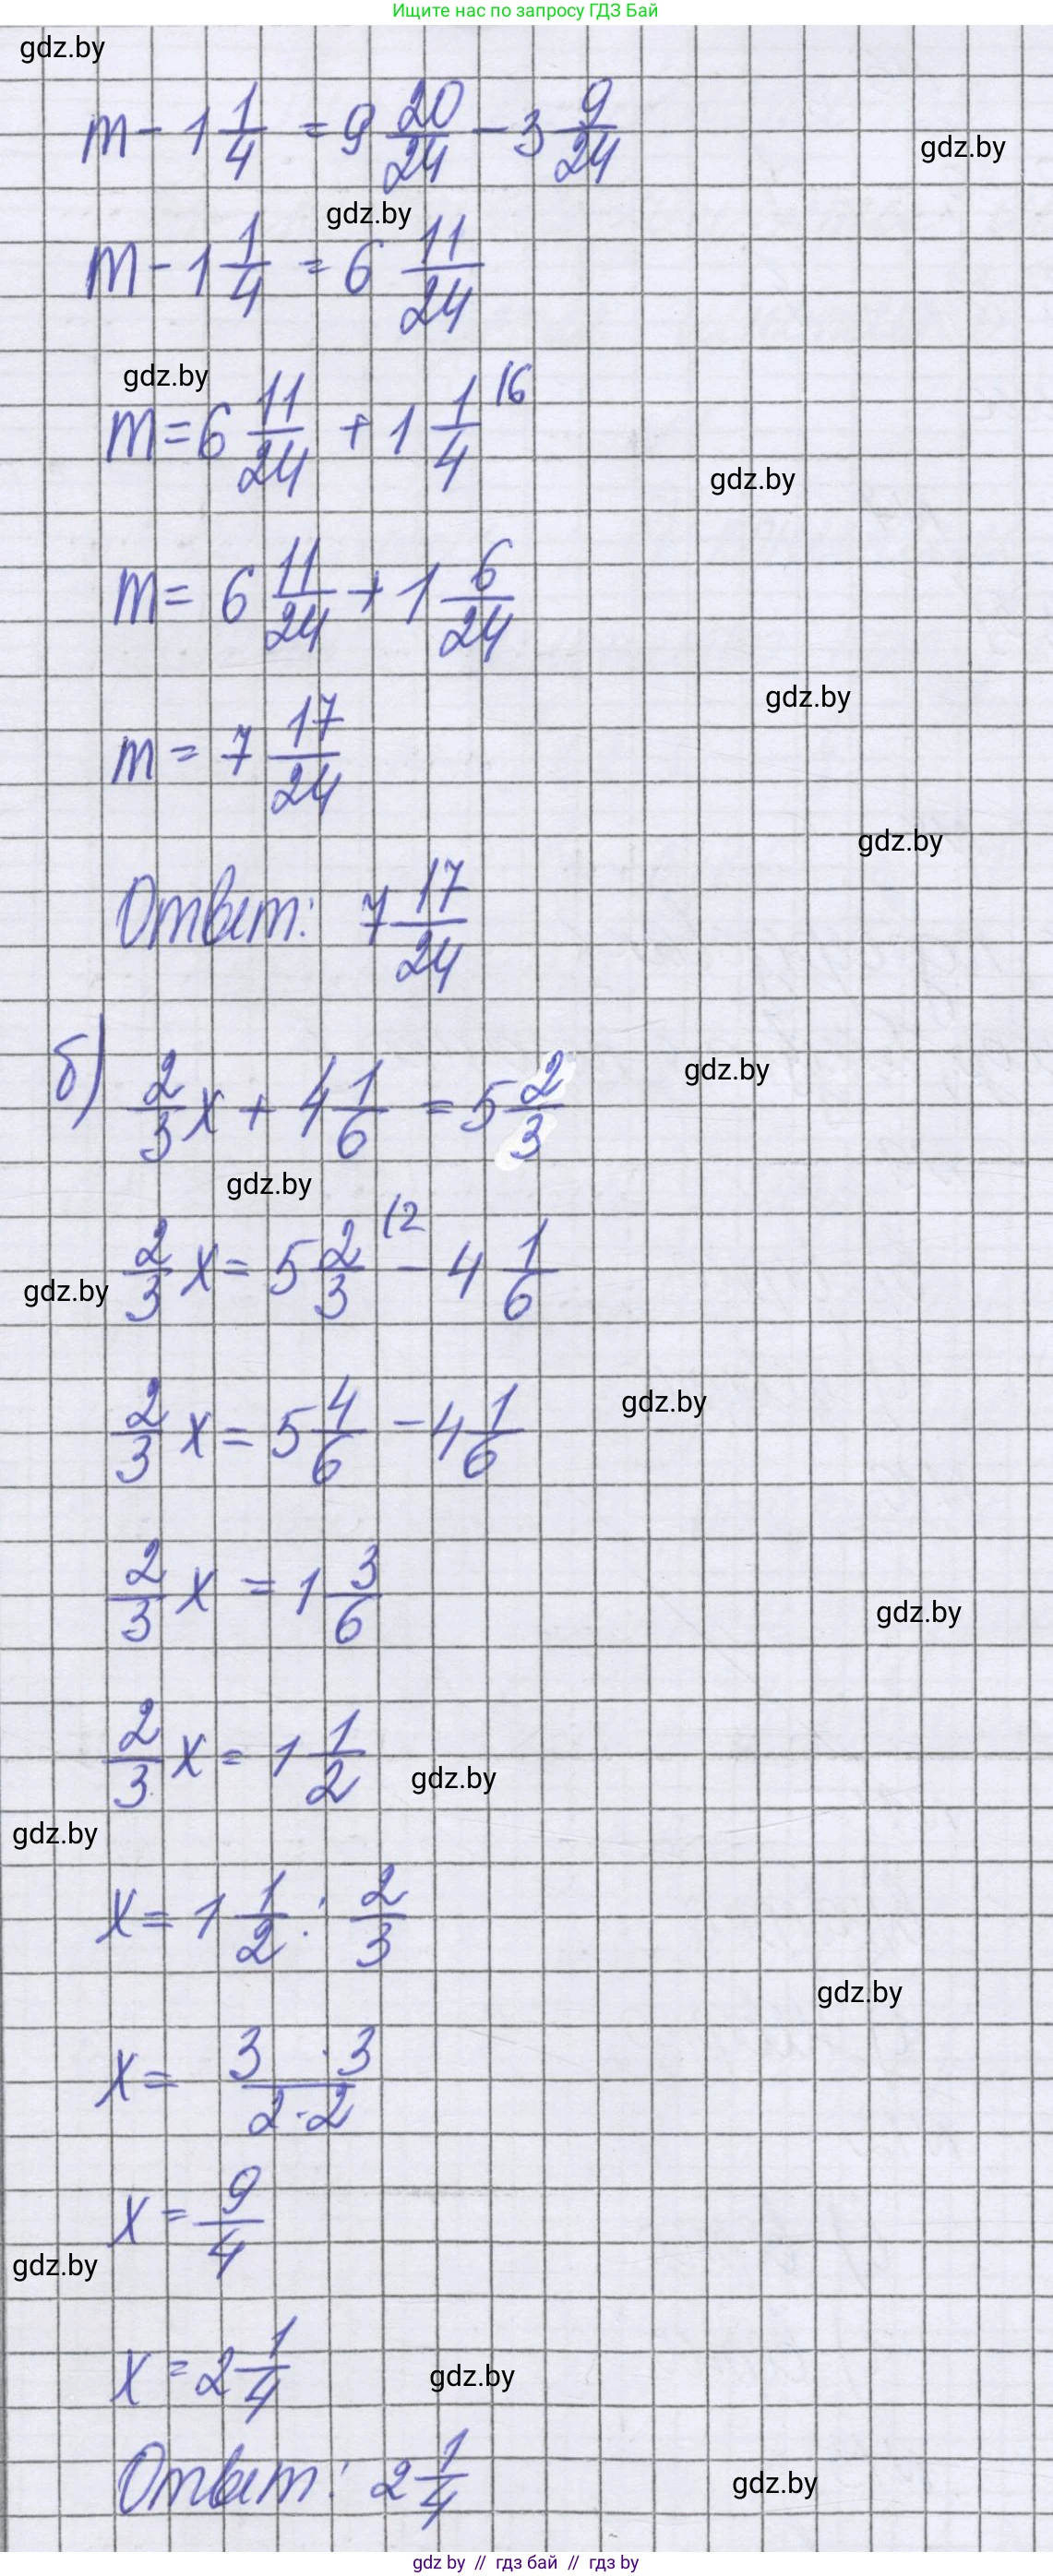 Ищите нас по запросу ГДЗ Бай
gdz.by
m - 1 1/4 = 9 20/24 - 3 9/24
gdz.by
gdz.by
m - 1 1/4 = 6 11/24
gdz.by
m = 6 11/24 + 1 1/4 (6
gdz.by
m = 6 11/24 + 1 6/24
gdz.by
m = 7 17/24
gdz.by
Ответ: 7 17/24
б) 2/3 x + 4 1/6 = 5 2/3
gdz.by
gdz.by
2/3 x = 5 2/3 (2 - 4 1/6
gdz.by
gdz.by
2/3 x = 5 4/6 - 4 1/6
2/3 x = 1 3/6
gdz.by
2/3 x = 1 1/2
gdz.by
gdz.by
x = 1 1/2 : 2/3
gdz.by
x = 3 · 3/2 · 2
x = 9/4
gdz.by
x = 2 1/4
gdz.by
Ответ: 2 1/4
gdz.by
gdz by // гдз бай // гдз by